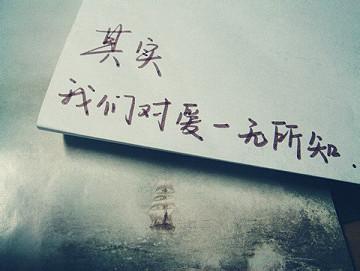 其实
我们对爱一无所知.